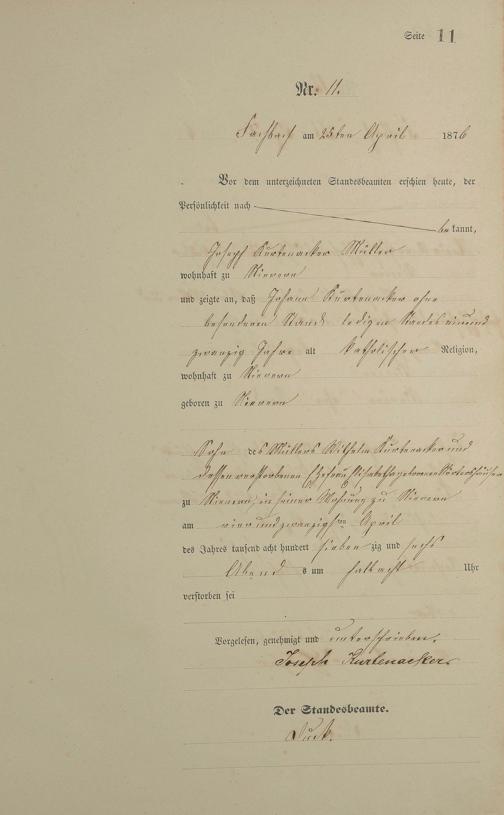 Seite 11
Nr. 11.
Fachbach am 25ten April 1876
Vor dem unterzeichneten Standesbeamten erschien heute, der
Persönlichkeit nach
bekannt,
Joseph Kurtenacker Müller
wohnhaft zu Nievern
und zeigte an, daß Johann Kurtenacker ohne
besonderen Stand ledigen Standes einund
zwanzig Jahre alt katholischer Religion,
wohnhaft zu Nievern
geboren zu Nievern
Sohn des Müllers Wilhelm Kurtenacker und
dessen verstorbenen Ehefrau Elisabetha geborene
zu Nievern in seiner Wohnung zu Nievern
am vierundzwanzigsten April
des Jahres tausend acht hundert siebenzig und sechs
Abends um halb acht Uhr
verstorben sei
Vorgelesen, genehmigt und unterschrieben.
Joseph Kurtenacker
Der Standesbeamte.